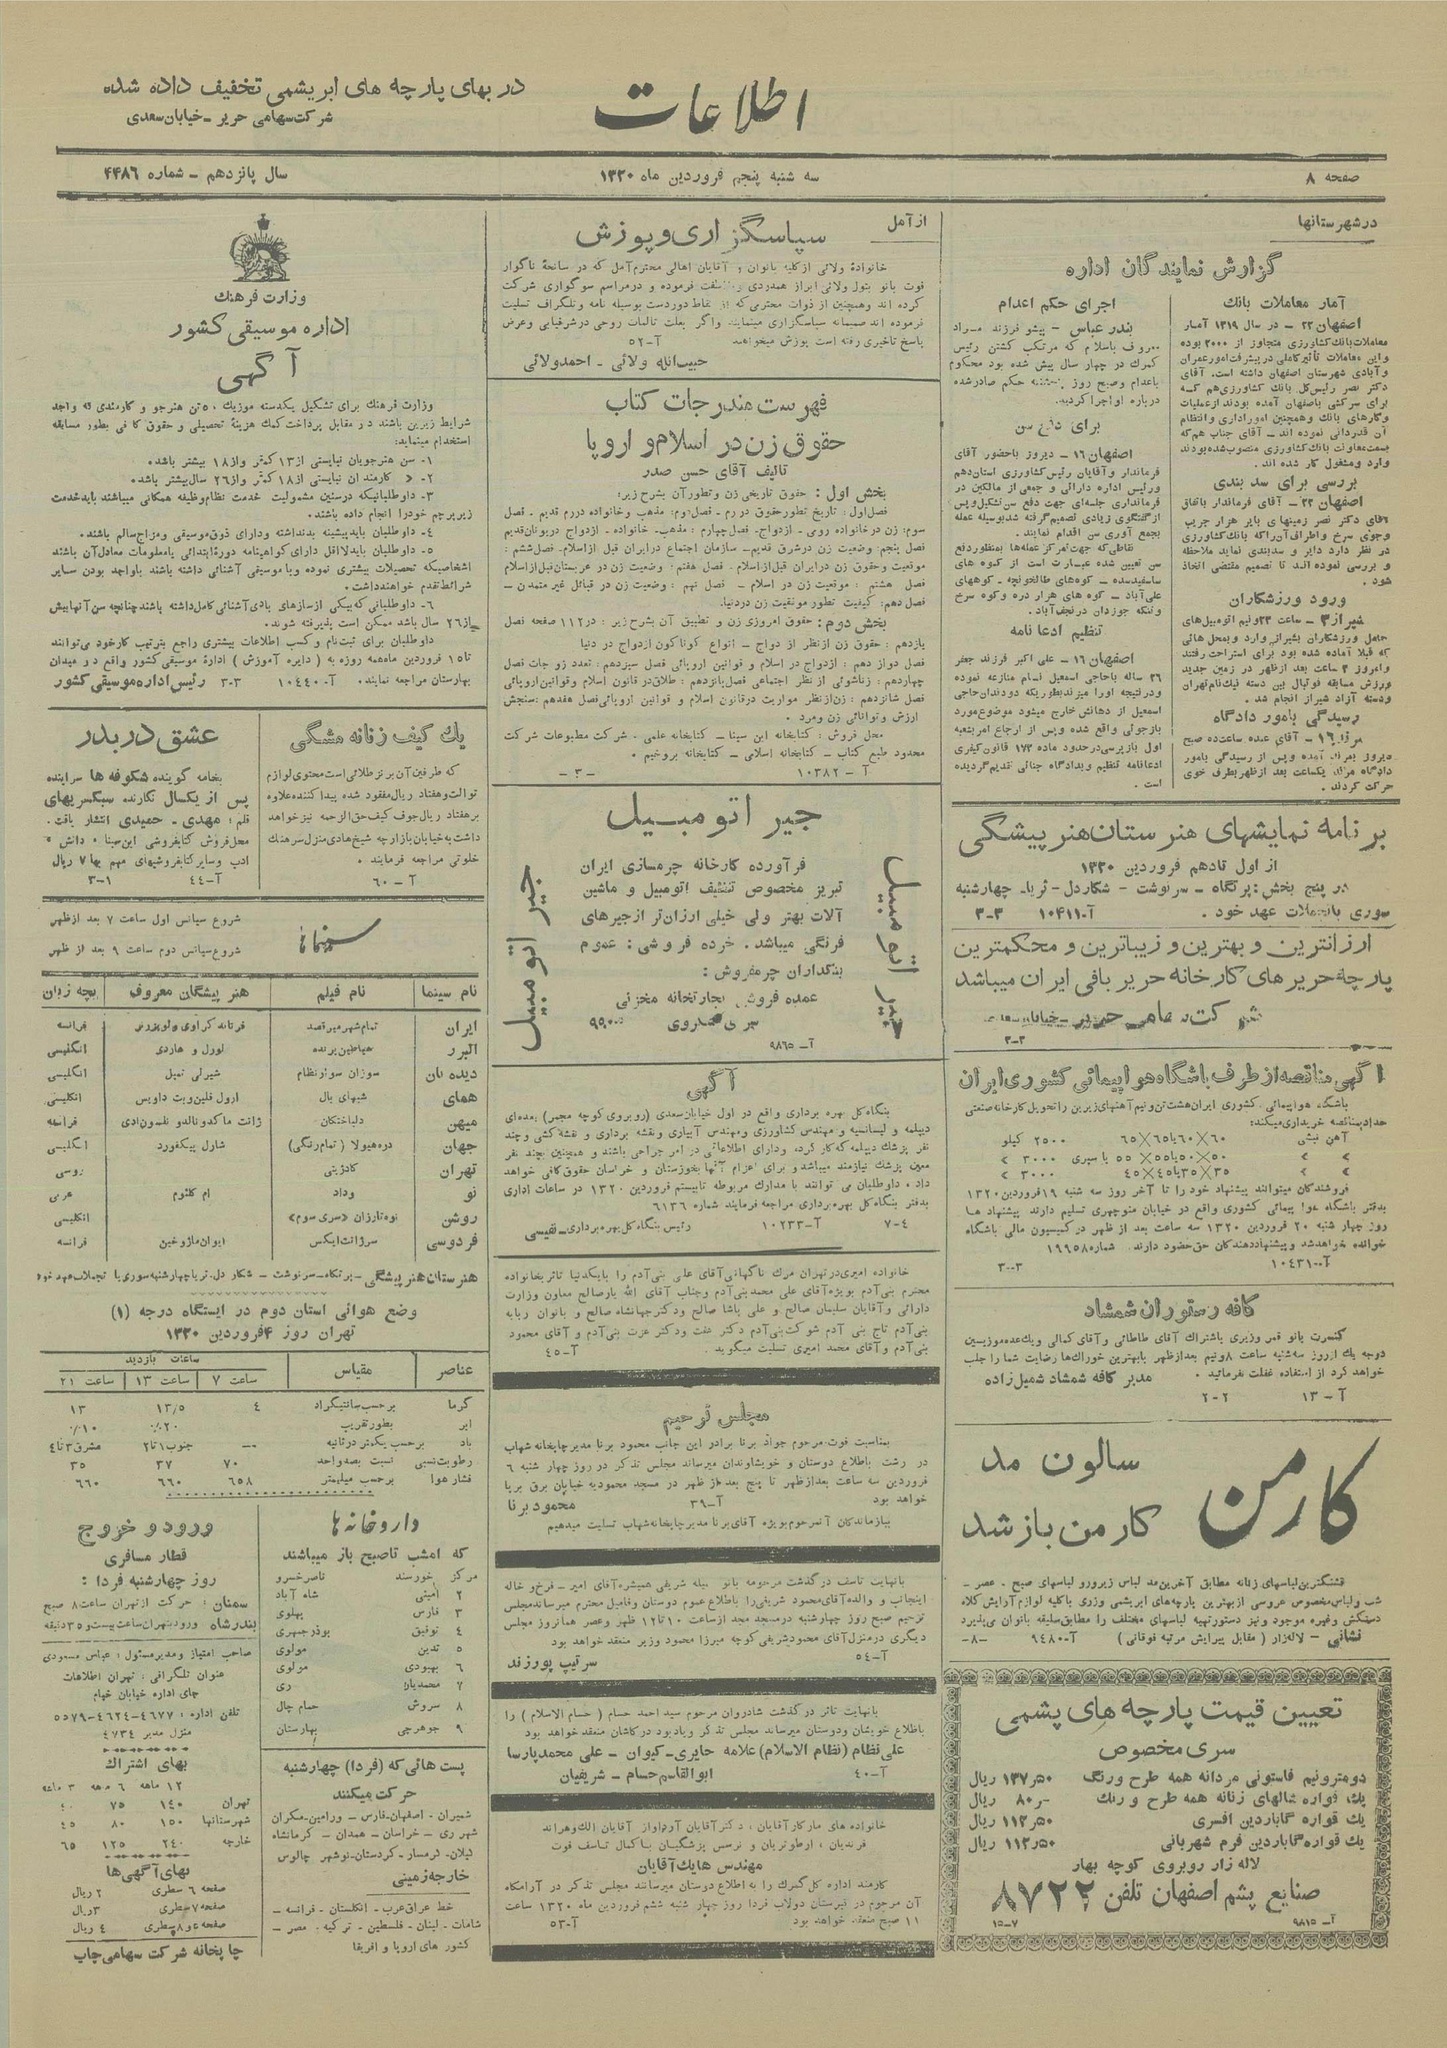 در بهای پارچه های ابریشمی تخفیف داده شده
شرکت سهامی حریر - خیابان سعدی
اطلاعات
صفحه ۸
سه شنبه پنجم فروردین ماه ۱۳۲۰
سال پانزدهم - شماره ۴۴۸۶
در شهرستانها
گزارش نمایندگان اداره
آمار معاملات بانك
اصفهان ۲۲ - در سال ۱۳۱۹ آمار
معاملات بانك کشاورزی متجاوز از ۲۰۰۰ بوده
و این معاملات تأثیر کاملی در پیشرفت امور عمران
و آبادی شهرستان اصفهان داشته است. آقای
دکتر نصر رئیس کل بانك کشاورزی هم که
برای سرکشی باصفهان آمده بودند از عملیات
و کارهای بانك و همچنین امور اداری و انتظام
آن قدردانی نموده اند - آقای جناب هم که
بسمت معاونت بانك کشاورزی منصوب شده بودند
وارد و مشغول کار شده اند.
بررسی برای سد بندی
اصفهان ۲۲ - آقای فرماندار باتفاق
آقای دکتر نصر زمینهای بایر هزار جریب
وجوی سرخ و اطراف آن را که بانك کشاورزی
در نظر دارد دایر و سدبندی نماید ملاحظه
و بررسی نموده اند تا تصمیم مقتضی اتخاذ
شود.
ورود ورزشکاران
شیراز ۳ - ساعت ۲۳ و نیم اتومبیل های
حامل ورزشکاران بشیراز وارد و بمحل هائی
که قبلا آماده شده بود برای استراحت رفتند
و امروز ۴ ساعت بعد از ظهر در زمین جدید
ورزش مسابقه فوتبال بین دسته نیك نام تهران
و دسته آزاد شیراز انجام شد.
رسیدگی بامور دادگاه
۱۶ - آقای عبده ساعت ده صبح
دیروز آمده و پس از رسیدگی بامور
دادگاه یکساعت بعد از ظهر بطرف خوی
حرکت کردند.
اجرای حکم اعدام
بندر عباس - پیشو فرزند مراد
معروف باسلام که مرتکب کشتن رئیس
گمرك در چهار سال پیش شده بود محکوم
باعدام و صبح روز حکم صادر شده
درباره او اجرا گردید.
برای دفع سن
اصفهان ۱۶ - دیروز با حضور آقای
فرماندار و آقایان رئیس کشاورزی استان دهم
و رئیس اداره دارائی و جمعی از مالکین در
فرمانداری جلسه ای جهت دفع سن تشکیل و پس
از گفتگوی زیادی تصمیم گرفته شد بوسیله عمله
بجمع آوری سن اقدام نمایند.
نقاطی که جهت تمرکز عمله ها بمنظور دفع
سن تعیین شده عبارت است از کوه های
سا سفید سده - کوه های طالخونچه - کوههای
علی آباد - کوه های هزار دره و کوه سرخ
و فنگه جوزدان در نجف آباد.
تنظیم ادعا نامه
اصفهان ۱۶ - علی اکبر فرزند جعفر
۲۶ ساله باحاجی اسمعیل تمام منازعه نموده
و در نتیجه او را میزند بطوریکه دو دندان حاجی
اسمعیل از دهانش خارج میشود موضوع مورد
بازجوئی واقع شده و پس از ارجاع امر بشعبه
اول بازپرسی در حدود ماده ۱۷۳ قانون کیفری
ادعا نامه تنظیم و بدادگاه جنائی تقدیم گردیده
است.
برنامه نمایشهای هنرستان هنرپیشگی
از اول تا دهم فروردین ۱۳۲۰
در پنج بخش: پرتگاه - سرنوشت - شکار دل - ثریا - چهارشنبه
سوری با تجملات عهد خود. آ-۱۰۴۱۱ ۳-۳
ارزانترین و بهترین و زیباترین و محکمترین
پارچه حریرهای کارخانه حریر بافی ایران میباشد
شرکت سهامی حریر - خیابان سعدی
۳-۲
آگهی مناقصه از طرف باشگاه هواپیمائی کشوری ایران
باشگاه هواپیمائی کشوری ایران هشت تن و نیم آهنهای زیرین را تحویل کارخانه صنعتی
خود بمناقصه خریداری میکند:
آهن نبشی ۶۰×۶۰ یا ۶۵×۶۵ ۲۵۰۰ کیلو
» » ۵۰×۵۰ یا ۵۵×۵۵ با سپری ۳۰۰۰ »
» » ۳۵×۳۵ یا ۴۵×۴۵ ۳۰۰۰ »
فروشندگان میتوانند پیشنهاد خود را تا آخر روز سه شنبه ۱۹ فروردین ۱۳۲۰
بدفتر باشگاه هواپیمائی کشوری واقع در خیابان منوچهری تسلیم دارند پیشنهاد ها
روز چهار شنبه ۲۰ فروردین ۱۳۲۰ سه ساعت بعد از ظهر در کمیسیون مالی باشگاه
خوانده خواهد شد و پیشنهاد دهندگان حق حضور دارند. شماره ۱۹۹۵۸
آ-۱۰۴۳۱ ۳-۳
کافه رستوران شمشاد
کنسرت بانو قمر وزیری باشتراك آقای طاطائی و آقای کمالی و یك عده موزیسین
درجه يك از روز سه شنبه ساعت ۸ و نیم بعد از ظهر با بهترین خوراك ها رضایت شما را جلب
خواهد کرد از استفاده غفلت نفرمائید. مدیر کافه شمشاد شمیل زاده
آ - ۱۳ ۲-۲
کارمن
سالون مد
کارمن باز شد
قشنگترین لباسهای زنانه مطابق آخرین مد لباس زیر و رو لباسهای صبح - عصر -
شب و لباس مخصوص عروسی از بهترین پارچه های ابریشمی وزری با کلیه لوازم آرایش کلاه
دستکش و غیره موجود و نیز دستور تهیه لباسهای مختلف را مطابق سلیقه بانوان می پذیرد
نشانی - لاله زار (مقابل پیرایش مرتبه فوقانی) آ-۹۴۸۰ ۸-
تعیین قیمت پارچه های پشمی
سری مخصوص
دو متر و نیم فاستونی مردانه همه طرح و رنگ ۱۳۷ر۵۰ ریال
یك قواره شالهای زنانه همه طرح و رنگ ۸۰ر- ریال
یك قواره گاباردین افسری ۱۱۲ر۵۰ ریال
یك قواره گاباردین فرم شهربانی ۱۱۲ر۵۰ ریال
لاله زار روبروی کوچه بهار
صنایع پشم اصفهان تلفن ۸۷۲۲
آ-۹۸۱۵ ۱۵-۷
از آمل
سپاسگزاری و پوزش
خانوادهٔ ولائی از کلیه بانوان و آقایان اهالی محترم آمل که در سانحهٔ ناگوار
فوت بانو بتول ولائی ابراز همدردی و ملاطفت فرموده و در مراسم سوگواری شرکت
کرده اند و همچنین از ذوات محترمی که از نقاط دوردست بوسیله نامه و تلگراف تسلیت
فرموده اند صمیمانه سپاسگزاری مینماید و اگر بعلت تالمات روحی در شرفیابی و عرض
پاسخ تاخیری رفته است پوزش میخواهند آ-۵۲
حبیب الله ولائی - احمد ولائی
فهرست مندرجات کتاب
حقوق زن در اسلام و اروپا
تالیف آقای حسن صدر
بخش اول: حقوق تاریخی زن و تطور آن بشرح زیر:
فصل اول: تاریخ تطور حقوق در رم - فصل دوم: مذهب و خانواده در رم قدیم. فصل
سوم: زن در خانواده رومی - ازدواج. فصل چهارم: مذهب. خانواده - ازدواج در یونان قدیم
فصل پنجم: وضعیت زن در شرق قدیم - سازمان اجتماع در ایران قبل از اسلام. فصل ششم:
موقعیت و حقوق زن در ایران قبل از اسلام. فصل هفتم: وضعیت زن در عربستان قبل از اسلام
فصل هشتم: موقعیت زن در اسلام - فصل نهم: وضعیت زن در قبائل غیر متمدن -
فصل دهم: کیفیت تطور موقعیت زن در دنیا.
بخش دوم: حقوق امروزی زن و تطبیق آن بشرح زیر: در ۱۱۲ صفحه فصل
یازدهم: حقوق زن از نظر ازدواج - انواع گوناگون ازدواج در دنیا
فصل دوازدهم: ازدواج در اسلام و قوانین اروپائی فصل سیزدهم: تعدد زوجات فصل
چهاردهم: زناشوئی از نظر اجتماعی فصل پانزدهم: طلاق در قانون اسلام و قوانین اروپائی
فصل شانزدهم: زن از نظر مواریث در قانون اسلام و قوانین اروپائی فصل هفدهم: سنجش
ارزش و توانائی زن و مرد.
محل فروش: کتابخانه ابن سینا - کتابخانه علمی. شرکت مطبوعات شرکت
محدود طبع کتاب - کتابخانه اسلامی - کتابخانه بروخیم.
آ - ۱۰۳۸۲ -۳-
جیر اتومبیل
جیر اتومبیل
جیر اتومبیل
فرآورده کارخانه چرمسازی ایران
تبریز مخصوص تنظیف اتومبیل و ماشین
آلات بهتر ولی خیلی ارزان تر از جیرهای
فرنگی میباشد. خرده فروشی: عموم
بنگداران چرمفروش:
عمده فروشی تجارتخانه مخزنی
سرای خسروی
آ-۹۸۶۵
آگهی
بنگاه کل بهره برداری واقع در اول خیابان سعدی (روبروی کوچه مجمر) بعده ای
دیپلمه و لیسانسیه و مهندس کشاورزی و مهندس آبیاری و نقشه برداری و نقشه کشی و چند
نفر پزشك دیپلمه که کار کرده و دارای اطلاعاتی در امر جراحی باشند و همچنین چند نفر
معین پزشك نیازمند میباشد و برای اعزام آنها بخوزستان و خراسان حقوق کافی خواهد
داد. داوطلبان می توانند با مدارك مربوطه تا بیستم فروردین ۱۳۲۰ در ساعات اداری
بدفتر بنگاه کل بهره برداری مراجعه فرمایند شماره ۶۱۳۶
۷-۴ آ-۱۰۲۳۳ رئیس بنگاه کل بهره برداری - نفیسی
خانواده امیری در تهران مرك ناگهانی آقای علی بنی آدم را با یکدنیا تاثر بخانواده
محترم بنی آدم بویژه آقای علی محمد بنی آدم و جناب آقای الله یار صالح معاون وزارت
دارائی و آقایان سلیمان صالح و علی پاشا صالح و دکتر جهانشاه صالح و بانوان ربابه
بنی آدم تاج بنی آدم شوکت بنی آدم دکتر عفت و دکتر عزت بنی آدم و آقای محمود
بنی آدم و آقای محمد امیری تسلیت میگوید. آ-۴۵
مجلس ترحیم
بمناسبت فوت مرحوم جواد برنا برادر این جانب محمود برنا مدیر چاپخانه شهاب
در رشت باطلاع دوستان و خویشاوندان میرساند مجلس تذکر در روز چهار شنبه ۶
فروردین سه ساعت بعد از ظهر تا پنج بعد از ظهر در مسجد محمودیه خیابان برق برپا
خواهد بود آ-۳۹ محمود برنا
ببازماندگان آنمرحوم بویژه آقای برنا مدیر چاپخانه شهاب تسلیت میدهیم
با نهایت تاسف درگذشت مرحومه بانو جمیله شریفی همشیره آقای امیر - فرخ و خاله
اینجانب و والده آقای محمود شریفی را باطلاع عموم دوستان و فامیل محترم میرساند مجلس
ترحیم صبح روز چهارشنبه در مسجد مجد از ساعت ۱۰ تا ۱۲ ظهر و عصر همانروز مجلس
دیگری در منزل آقای محمود شریفی کوچه میرزا محمود وزیر منعقد خواهد بود
آ-۵۴ سرتیپ پورزند
با نهایت تاثر درگذشت شادروان مرحوم سید احمد حسام (حسام الاسلام) را
باطلاع خویشان و دوستان میرساند مجلس تذکر و یاد بود در کاشان منعقد خواهد بود
علی نظام (نظام الاسلام) علامه حایری - کیوان - علی محمد پارسا
آ-۴۰ ابوالقاسم حسام - شریفیان
خانواده های مارکار آقایان، دکتر آقایان آرام و از آقایان الك و هراند
فرندیان، ارطو تریان و نرسس پزشکیان با کمال تاسف فوت
مهندس هایك آقایان
کارمند اداره کل گمرك را به اطلاع دوستان میرسانند مجلس تذکر در آرامگاه
آن مرحوم در قبرستان دولاب فردا روز چهار شنبه ششم فروردین ماه ۱۳۲۰ ساعت
۱۱ صبح منعقد خواهد بود آ-۵۳
وزارت فرهنك
اداره موسیقی کشور
آگهی
وزارت فرهنك برای تشکیل یکدسته موزیك ۵۰ تن هنرجو و کارمندی که واجد
شرایط زیرین باشند در مقابل پرداخت کمك هزینهٔ تحصیلی و حقوق کافی بطور مسابقه
استخدام مینماید:
۱- سن هنرجویان نبایستی از ۱۳ کمتر و از ۱۸ بیشتر باشد.
۲- » کارمندان نبایستی از ۱۸ کمتر و از ۲۶ سال بیشتر باشد.
۳- داوطلبانیکه در سنین مشمولیت خدمت نظام وظیفه همگانی میباشند باید خدمت
زیر پرچم خود را انجام داده باشند.
۴- داوطلبان باید پیشینه بد نداشته و دارای ذوق موسیقی و مزاج سالم باشند.
۵- داوطلبان باید لااقل دارای گواهینامه دورهٔ ابتدائی یا معلومات معادل آن باشند
اشخاصیکه تحصیلات بیشتری نموده و یا موسیقی آشنائی داشته باشند با واجد بودن سایر
شرائط تقدم خواهند داشت.
۶- داوطلبانی که بیکی از سازهای بادی آشنائی کامل داشته باشند چنانچه سن آنها بیش
از ۲۶ سال باشد ممکن است پذیرفته شوند.
داوطلبان برای ثبت نام و کسب اطلاعات بیشتری راجع بترتیب کار خود می توانند
تا ۱۵ فروردین ماه همه روزه به (دایره آموزش) ادارهٔ موسیقی کشور واقع در میدان
بهارستان مراجعه نمایند. آ-۱۰۴۴۰ ۳-۳ رئیس اداره موسیقی کشور
یك کیف زنانه مشگی
که طرفین آن برنز طلائی است محتوی لوازم
توالت و هفتاد ریال مفقود شده پیدا کننده علاوه
بر هفتاد ریال جوف کیف حق الزحمه نیز خواهد
داشت به خیابان بازارچه شیخ هادی منزل سرهنك
خلوتی مراجعه فرمایند.
آ - ۶۰
عشق دربدر
بخامه گوینده شکوفه ها سراینده
پس از یکسال نگارنده سبکسریهای
قلم: مهدی - حمیدی انتشار یافت.
محل فروش کتابفروشی ابن سینا، دانش،
ادب و سایر کتابفروشیهای مهم بها ۷ ریال
آ-۴۴ ۳-۱
سینماها
شروع سیانس اول ساعت ۷ بعد از ظهر
شروع سیانس دوم ساعت ۹ بعد از ظهر
نام سینما نام فیلم هنر پیشگان معروف بچه زبان
ایران تمام شهر میرقصد فرناند گراوی و لویزرنر فرانسه
البرز شیاطین پرنده لورل و هاردی انگلیسی
دیده بان سوزان سوار نظام شیرلی تمپل انگلیسی
همای شبهای بال ارول فلین و بت داویس انگلیسی
میهن دلباختگان ژانت ماکدونالد و نلسون ادی فرانسه
جهان دره هیولا (تمام رنگی) شارل پیکفورد انگلیسی
تهران روسی
نو وداد ام کلثوم عربی
روشن نوه تارزان «سری سوم» انگلیسی
فردوسی سرژانت ایکس ایوان ماژوخین فرانسه
هنرستان هنرپیشگی - پرتگاه - سرنوشت - شکار دل. ثریا چهارشنبه سوری با تجملات عهد خود
وضع هوائی استان دوم در ایستگاه درجه (۱)
تهران روز ۴ فروردین ۱۳۲۰
عناصر مقیاس ساعات بازدید
ساعت ۷ ساعت ۱۳ ساعت ۲۱
گرما بر حسب سانتیگراد ۴ ۱۳/۵ ۱۳
ابر بطور تقریب ۲۰٪ ۱۰٪
باد بر حسب یکمتر در ثانیه - جنوب ۱ تا ۲ مشرق ۳ تا ۴
رطوبت نسبی نسبت بصد واحد ۷۰ ۳۷ ۳۵
فشار هوا بر حسب میلیمتر ۶۵۸ ۶۶۰ ۶۶۰
داروخانه ها
که امشب تا صبح باز میباشند
مرکز خورسند ناصر خسرو
۲ امینی شاه آباد
۳ فارس پهلوی
۴ توفیق بوذرجمهری
۵ تدین مولوی
۶ بهبودی مولوی
۷ محمدیان ری
۸ سروش حمام چال
۹ جوهرچی بهارستان
پست هائی که (فردا) چهارشنبه
حرکت میکنند
شمیران - اصفهان - فارس - ورامین - مکران
شهر ری - خراسان - همدان - کرمانشاه
گیلان - گرمسار - کردستان - نوشهر چالوس
خارجه زمینی
خط عراق عرب - انگلستان - فرانسه -
شامات - لبنان - فلسطین - ترکیه. مصر -
کشور های اروپا و افریقا
ورود و خروج
قطار مسافری
روز چهارشنبه فردا:
سمنان: حرکت از تهران ساعت ۸ صبح
بندر شاه ورود بتهران ساعت بیست و ۳۵ دقیقه
صاحب امتیاز و مدیر مسئول: عباس مسعودی
عنوان تلگرافی: تهران اطلاعات
جای اداره خیابان خیام
تلفن اداره: ۴۶۷۷-۴۶۲۴-۵۵۷۹
منزل مدیر ۴۷۳۴
بهای اشتراك
۱۲ ماهه ۶ ماهه ۳ ماهه
تهران ۱۴۰ ۷۵ ۴۰
شهرستانها ۱۵۰ ۸۰ ۴۵
خارجه ۲۴۰ ۱۲۵ ۶۵
بهای آگهی ها
صفحه ۶ سطری ۲ ریال
صفحه ۷ سطری ۳ ریال
صفحه ۵ و ۸ سطری ۴ ریال
چاپخانه شرکت سهامی چاپ